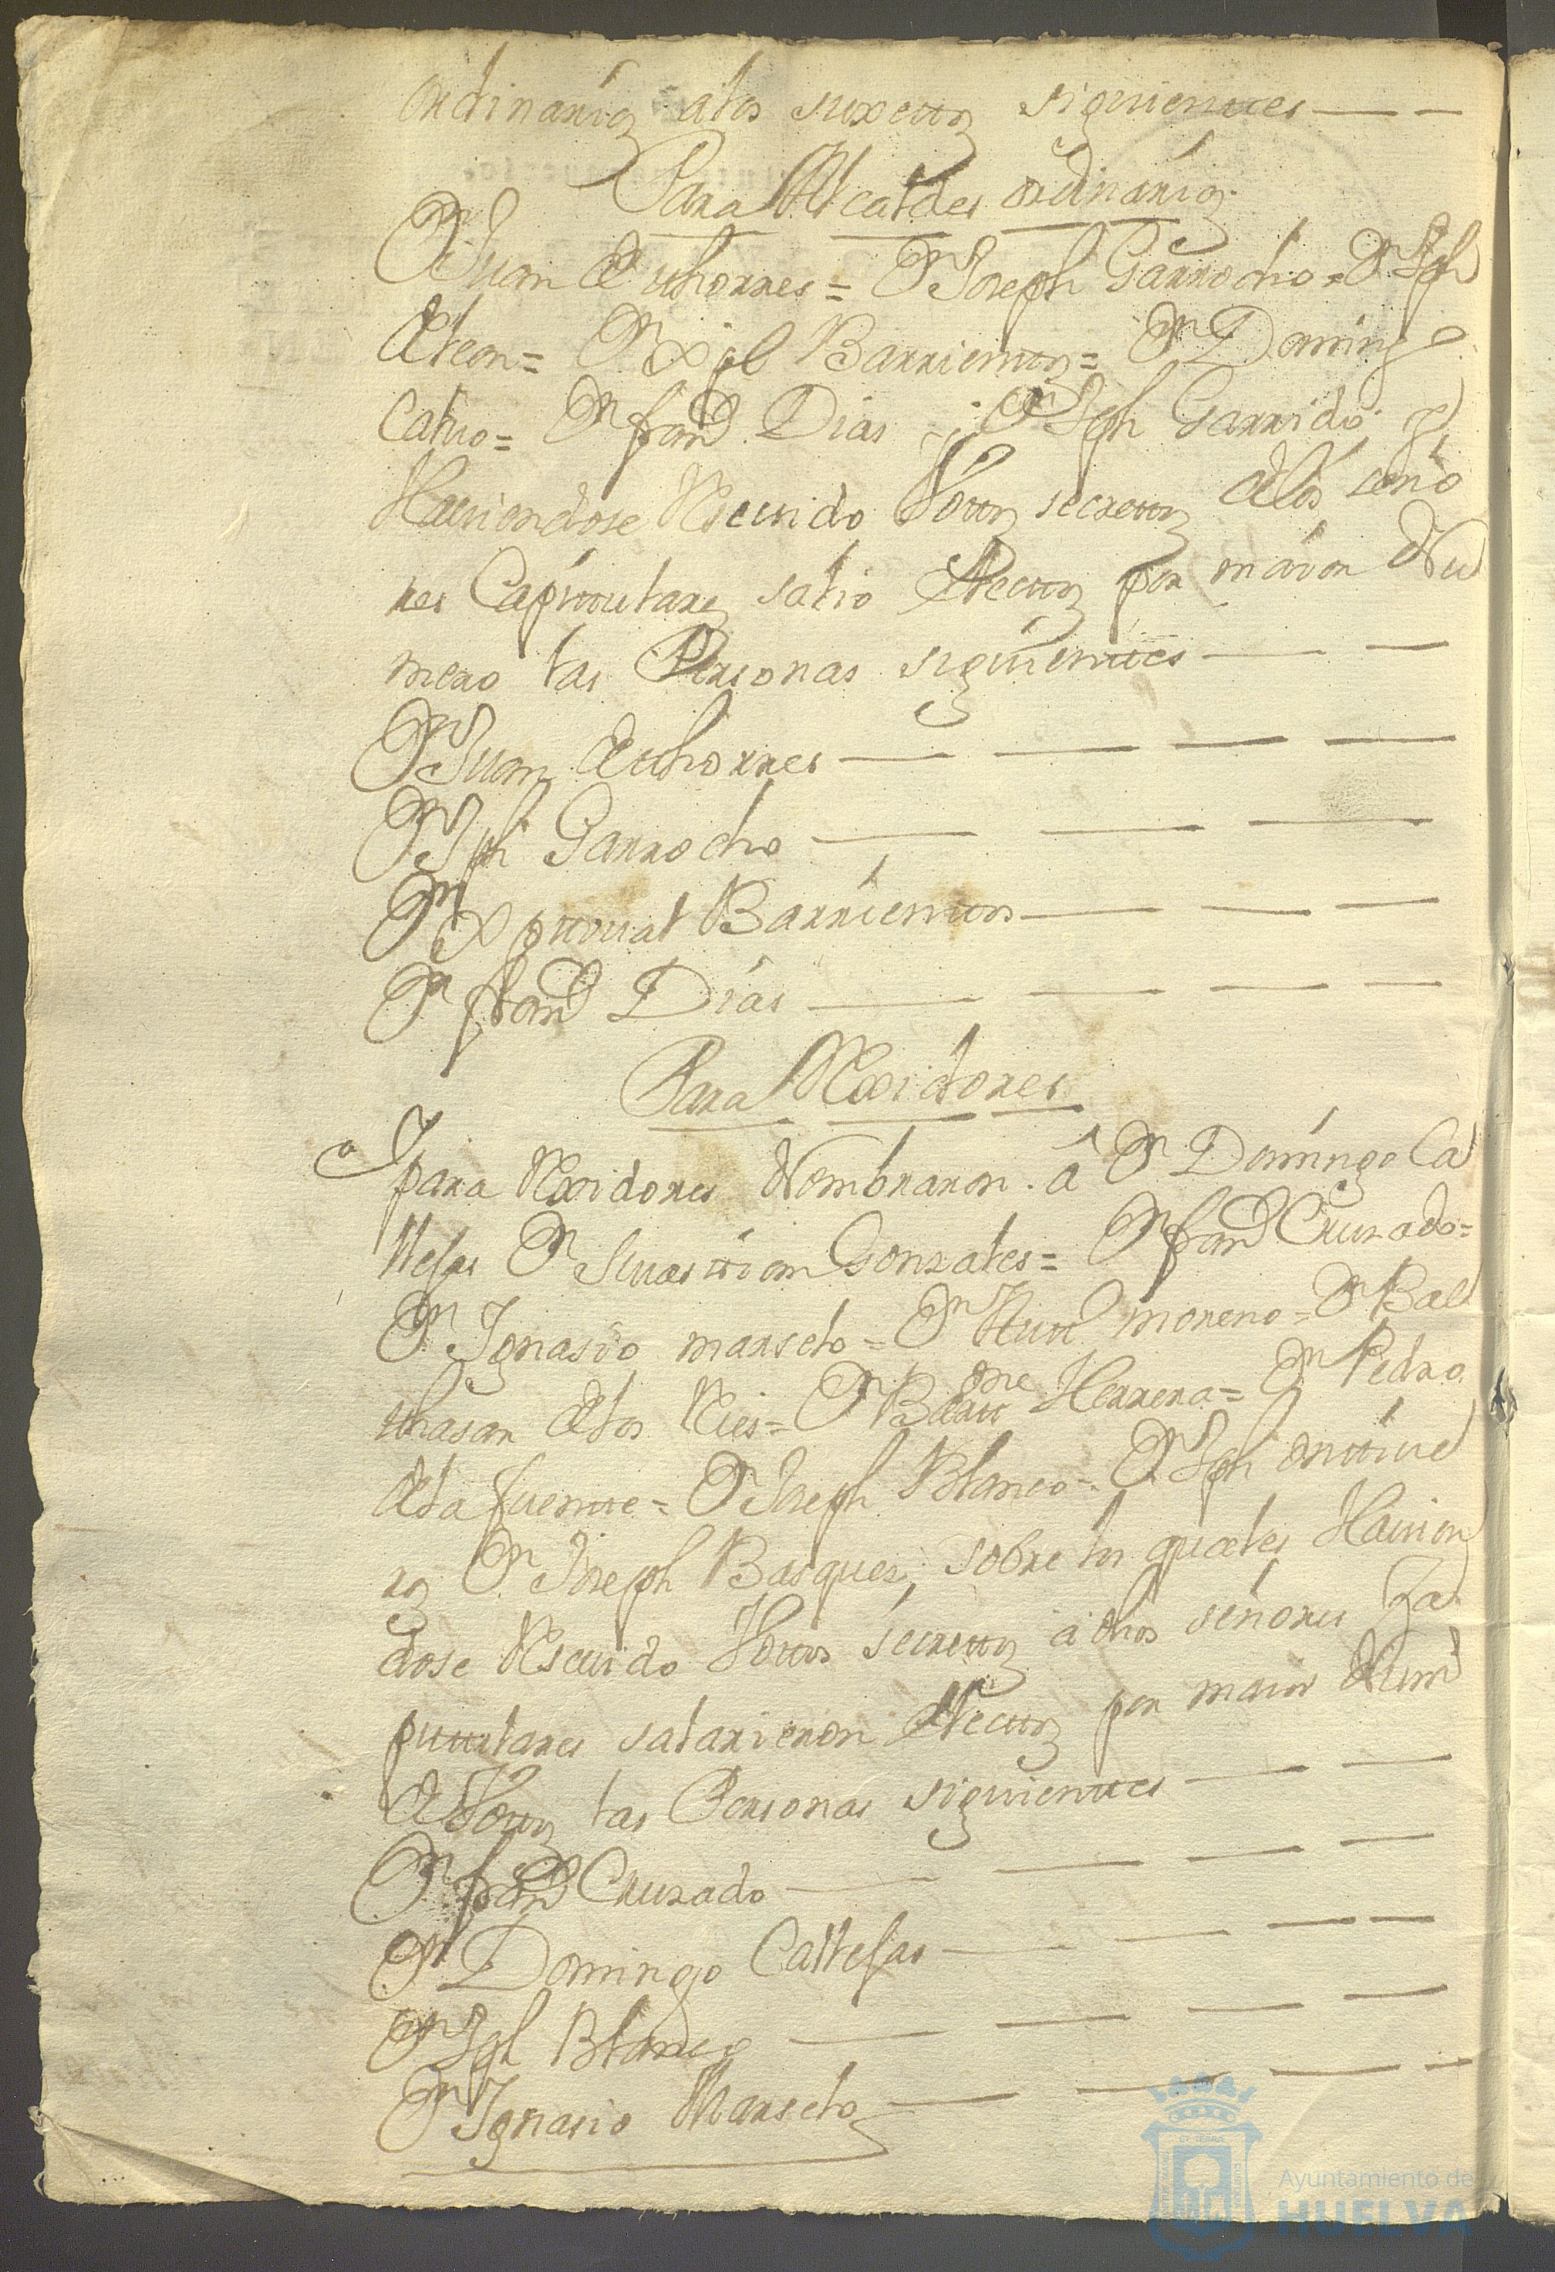 ordinarios a los suxettos siguienttes
Para Alcaldes ordinarios
Dn Juan de thorres = Dn Joseph Garrocho = Dn Jph
de leon = Dn Xpl Barrienttos = Dn Domingo
Calvo = Dn franco Dias = Dn Jph Garrido y
Haviendose Resevido Vottos secrettos de los seño
res Capittulares salio Electtos por maior Nu
mero las Personas siguienttes
Dn Juan de thorres
Dn Jph Garrocho
Dn Xpttoval Barrienttos
Dn franco Dias
Para Rexidores
para Rexidores Nombraron a Dn Domingo Ca
llejas Dn Sevasttian Gonzales = Dn franco Cruzado =
Dn Ignasio marselo = Dn moreno = Dn Bal
thasar de los Reies = Dn Bartt me Herrera = Dn Pedro
de la fuentte = Dn Joseph Blanco = Dn Jph
Dn Joseph Basques, sobre los quales Havien
dose Resevido Vottos secrettos a dhos señores Ca
pittulares salarieron Electtos por maior Numo
de Vottos las Personas siguienttes
Dn franco Cruzado
Dn Domingo Callejas
Dn Jph Blanco
Dn Ignasio Marselo
Ayuntamiento de
HUELVA